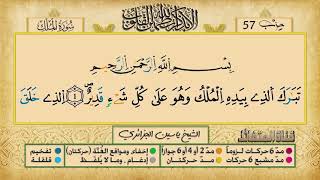 سُورَةُ المُلْكِ
حِزْب 57
بِسْمِ اللَّهِ الرَّحْمَٰنِ الرَّحِيمِ
تَبَٰرَكَ اَلذِے بِيَدِهِ اِلْمُلْكُ وَهُوَ عَلَىٰ كُلِّ شَےْءٖ قَدِيرٌ ١ اَلذِے خَلَقَ
الشيخ ياسين الجزائري
مدّ 6 حركات لزوماً
مدّ 2 أو 4 أو 6 جوازاً
إخفاء ومواقع الغُنَّة (حركتان)
تفخيم
مدّ مشبع 6 حركات
مدّ حركتان
إدغام . وما لا يُلفظ
قلقلة